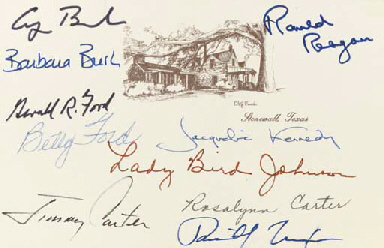 G Bush
Ronald
Reagan
Barbara Bush
Gerald R. Ford
Stonewall, Texas
Betty Ford
Jacqueline Kennedy
Lady Bird Johnson
Jimmy Carter
Rosalynn Carter